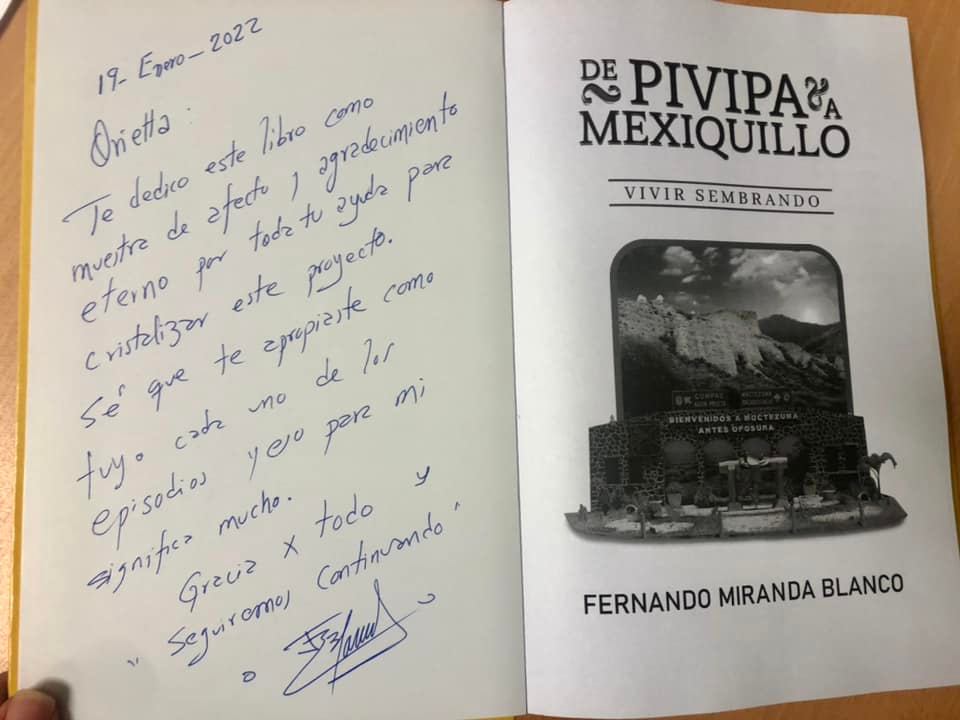 19- Enero - 2022
Orietta:
Te dedico este libro como
muestra de afecto y agradecimiento
eterno por toda tu ayuda para
cristalizar este proyecto.
Sé que te apropiaste como
tuyo cada uno de los
episodios y eso para mi
significa mucho.
Gracia x todo y
"Seguiremos continuando"
DE PIVIPA A
MEXIQUILLO
VIVIR SEMBRANDO
CUMPAS
AGUA PRIETA
MOCTEZUMA
BIENVENIDOS A MOCTEZUMA
ANTES OPOSURA
FERNANDO MIRANDA BLANCO